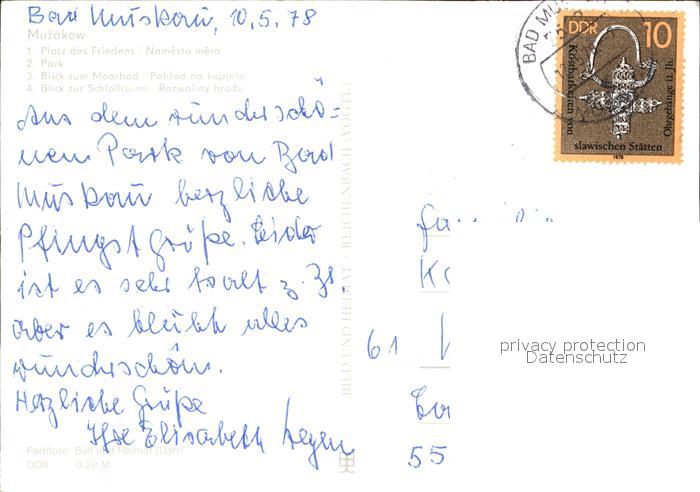 Bad Muskau, 10.5.78
Mužakow
1. Platz des Friedens / Naměsta měra
2. Park
3. Blick zum Moorbad / Pohlad na kupjele
4. Blick zur Schloßruine / Rozwaliny hrodu
Aus dem wunderschö=
nen Park von Bad
Muskau herzliche
Pfingstgrüße. Leider
ist es sehr kalt z. Zt.
aber es bleibt alles
wunderschön.
Herzliche Grüße
Ilse Elisabeth
Farbfoto: Bild und Heimat (Darr)
DDR 0,20 M
BILD UND HEIMAT · REICHENBACH (VOGTL)
BAD MU
DDR 10
Kostbarkeiten von
slawischen Stätten
Ohrgehänge 11. Jh.
1978
61
55
privacy protection
Datenschutz